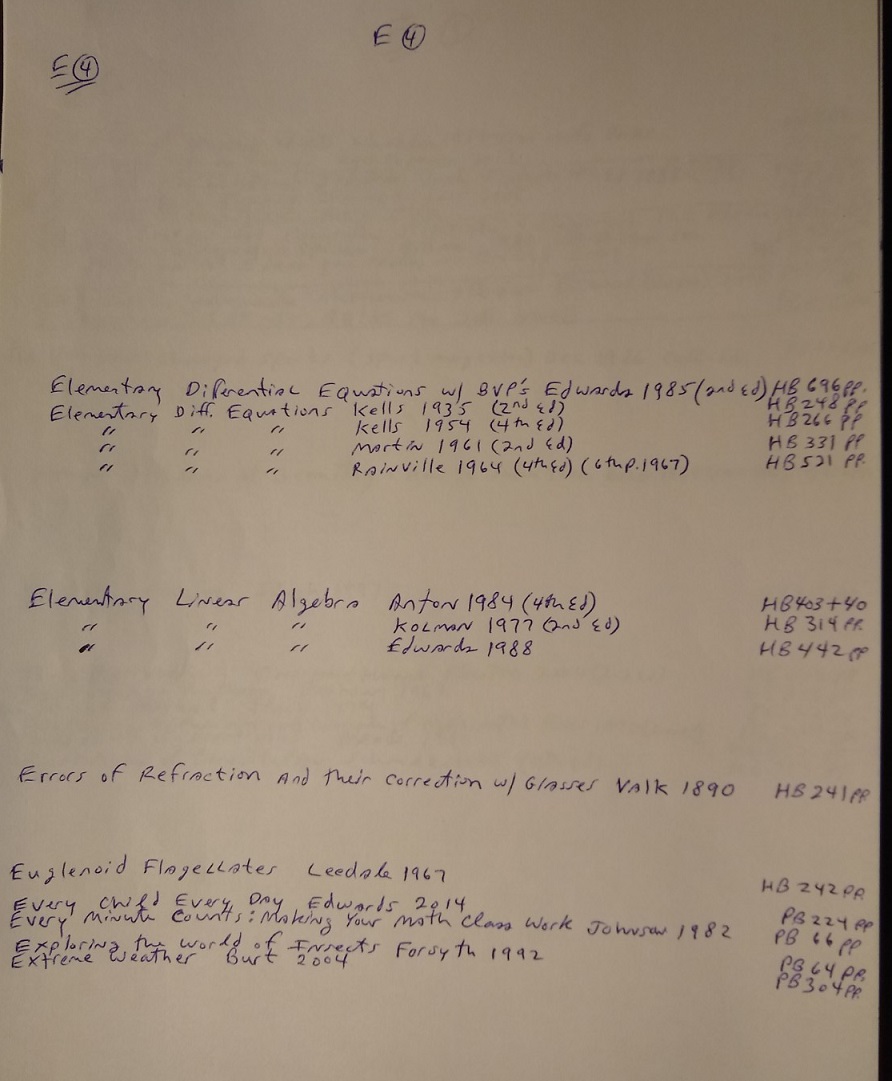 E ④
E ④
Elementary Diferential Equations w/ BVP's Edwards 1985 (2nd Ed) HB 696 pp.
Elementary Diff. Equations Kells 1935 (2nd Ed) HB 248 pp
" " " Kells 1954 (4th Ed) HB 266 pp
" " " Martin 1961 (2nd Ed) HB 331 pp
" " " Rainville 1964 (4th Ed) (6th p. 1967) HB 521 pp.
Elementary Linear Algebra Anton 1984 (4th Ed) HB 403+40
" " " Kolman 1977 (2nd Ed) HB 314 pp.
" " " Edwards 1988 HB 442 pp
Errors of Refraction And their correction w/ Glasses Valk 1890 HB 241 pp
Euglenoid Flagellates Leedale 1967 HB 242 pp
Every Child Every Day Edwards 2014 PB 224 pp
Every Minute Counts: Making Your Math Class Work Johnson 1982 PB 66 pp
Exploring the World of Insects Forsyth 1992 PB 64 pp.
Extreme Weather Burt 2004 PB 304 pp.